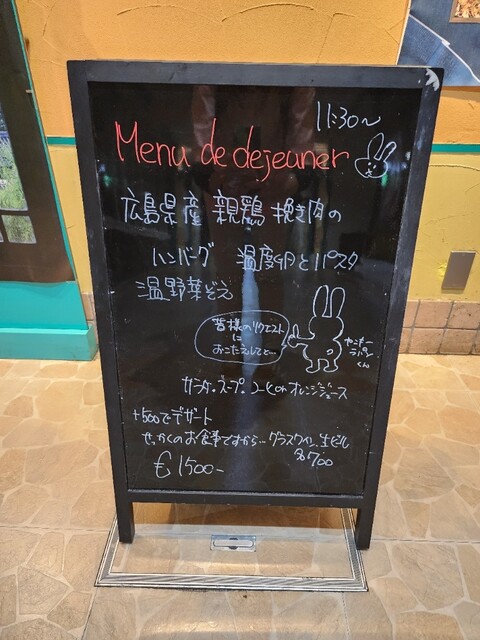 11:30～
Menu de dejeuner
広島県産 親鶏 挽き肉の
ハンバーグ 温度卵とパスタ
温野菜ぞえ
皆様のリクエスト
に
おこたえして…
ヤニボー
ラパン
くん
サラダ・スープ・コーヒor オレンジジュース
+500でデザート
せっかくのお食事ですから… グラスワイン、生ビール
700
€1500-